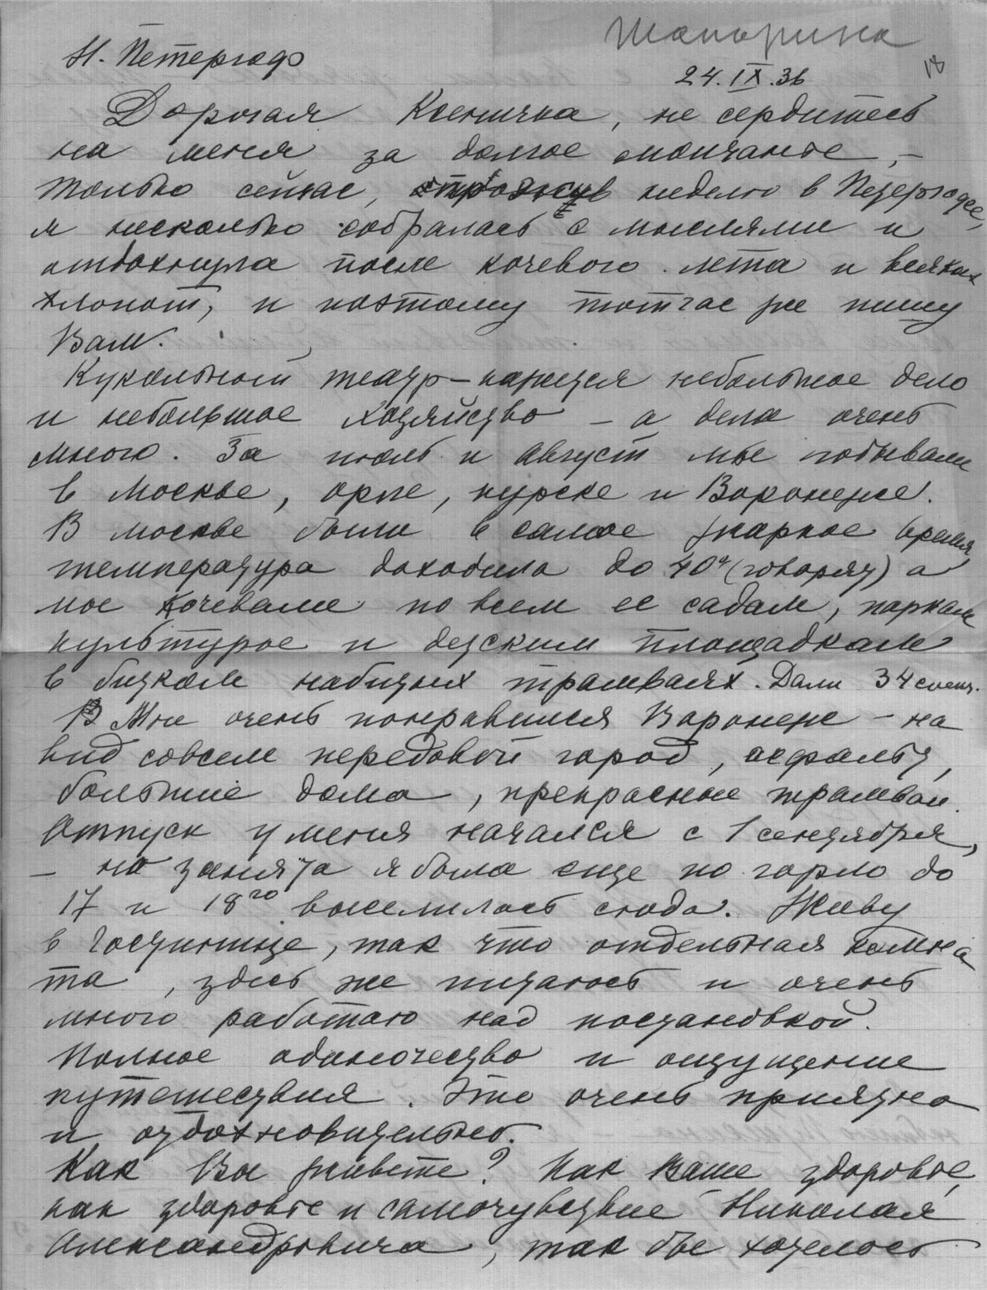 Шапорина
18
Н. Петергоф
24.IX.36
Дорогая Ксеничка, не сердитесь
на меня за долгое молчанье, –
только сейчас, прожив неделю в Петергофе,
я несколько собралась с мыслями и
отдохнула после кочевого лета и всяких
хлопот, и поэтому тотчас же пишу
Вам.
Кукольный театр – кажется небольшое дело
и небольшое хозяйство – а дела очень
много. За июль и август мы побывали
в Москве, Орле, Курске и Воронеже.
В Москве были в самое жаркое время,
температура доходила до 40° (говорят) а
мы кочевали по всем ее садам, паркам
культуры и детским площадкам
в битком набитых трамваях. Дали 34 спект.
Мне очень понравился Воронеж – на
вид совсем передовой город, асфальт,
большие дома, прекрасные трамваи.
Отпуск у меня начался с 1 сентября,
– но занята я была еще по горло до
17 и 18го выселилась сюда. Живу
в гостинице, так что отдельная комна
та, здесь же питаюсь и очень
много работаю над постановкой.
Полное одиночество и ощущение
путешествия. Это очень приятно
и отдохновительно.
Как Вы живете? Как Ваше здоровье,
как здоровье и самочувствие Николая
Александровича, так бы хотелось